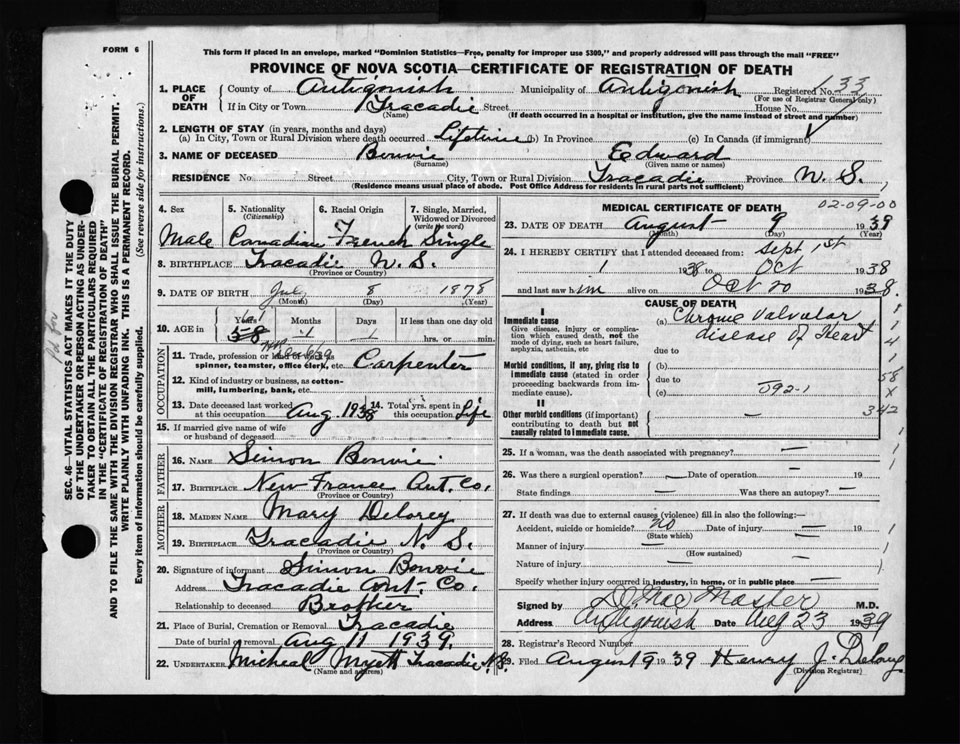 FORM 6
This form if placed in an envelope, marked "Dominion Statistics—Free, penalty for improper use $300," and properly addressed will pass through the mail "FREE"
PROVINCE OF NOVA SCOTIA—CERTIFICATE OF REGISTRATION OF DEATH
1. PLACE OF DEATH { County of Antigonish Municipality of Antigonish Registered No. 33
(For use of Registrar General only)
If in City or Town Tracadie Street House No.
(Name) (If death occurred in a hospital or institution, give the name instead of street and number)
2. LENGTH OF STAY (in years, months and days)
(a) In City, Town or Rural Division where death occurred Lifetime (b) In Province (c) In Canada (if immigrant)
3. NAME OF DECEASED Bonvie Edward
(Surname) (Given name or names)
RESIDENCE No. Street City, Town or Rural Division Tracadie Province N. S.
(Residence means usual place of abode. Post Office Address for residents in rural parts not sufficient)
4. Sex 5. Nationality (Citizenship) 6. Racial Origin 7. Single, Married, Widowed or Divorced (write the word)
Male Canadian French Single
8. BIRTHPLACE Tracadie N. S.
(Province or Country)
9. DATE OF BIRTH July 8 1878
(Month) (Day) (Year)
10. AGE in { Years Months Days If less than one day old
58 1 1 hrs. or min.
OCCUPATION
11. Trade, profession or kind of work as spinner, teamster, office clerk, etc. Carpenter
12. Kind of industry or business, as cotton-mill, lumbering, bank, etc.
13. Date deceased last worked at this occupation Aug. 1938 14. Total yrs. spent in this occupation Life
15. If married give name of wife or husband of deceased
FATHER
16. NAME Simon Bonvie
17. BIRTHPLACE New France Ant. Co.
(Province or Country)
MOTHER
18. MAIDEN NAME Mary Delorey
19. BIRTHPLACE Tracadie N. S.
(Province or Country)
20. Signature of informant Simon Bonvie
Address Tracadie Ant. Co.
Relationship to deceased Brother
21. Place of Burial, Cremation or Removal Tracadie
Date of burial or removal Aug 11 1939.
22. UNDERTAKER Micheal Myett Tracadie N.S.
(Name and address)
MEDICAL CERTIFICATE OF DEATH 02-09-00
23. DATE OF DEATH August 9 1939
(Month) (Day) (Year)
24. I HEREBY CERTIFY that I attended deceased from: Sept 1st
1938 to Oct 1938
and last saw him alive on Oct 20 1938.
CAUSE OF DEATH
I
Immediate cause (a) Chronic Valvular
Give disease, injury or complication which caused death, not the mode of dying, such as heart failure, asphyxia, asthenia, etc
disease of Heart
due to
Morbid conditions, if any, giving rise to immediate cause (stated in order proceeding backwards from immediate cause).
(b)
due to
(c) 092-1
58
X
342
II
Other morbid conditions (if important) contributing to death but not causally related to immediate cause.
25. If a woman, was the death associated with pregnancy?
26. Was there a surgical operation? — Date of operation — 19
State findings — Was there an autopsy? —
27. If death was due to external causes (violence) fill in also the following:—
Accident, suicide or homicide? no Date of injury — 19
(State which)
Manner of injury —
(How sustained)
Nature of injury —
Specify whether injury occurred in industry, in home, or in public place —
Signed by MacMaster M.D.
Address Antigonish Date Aug 23 1939
28. Registrar's Record Number
29. Filed August 9 1939 Henry J. Delorey
(Division Registrar)
SEC. 46—VITAL STATISTICS ACT MAKES IT THE DUTY
OF THE UNDERTAKER OR PERSON ACTING AS UNDER-
TAKER TO OBTAIN ALL THE PARTICULARS REQUIRED
IN THE "CERTIFICATE OF REGISTRATION OF DEATH"
AND TO FILE THE SAME WITH THE DIVISION REGISTRAR WHO SHALL ISSUE THE BURIAL PERMIT.
WRITE PLAINLY WITH UNFADING INK. THIS IS A PERMANENT RECORD.
Every item of information should be carefully supplied. (See reverse side for instructions.)